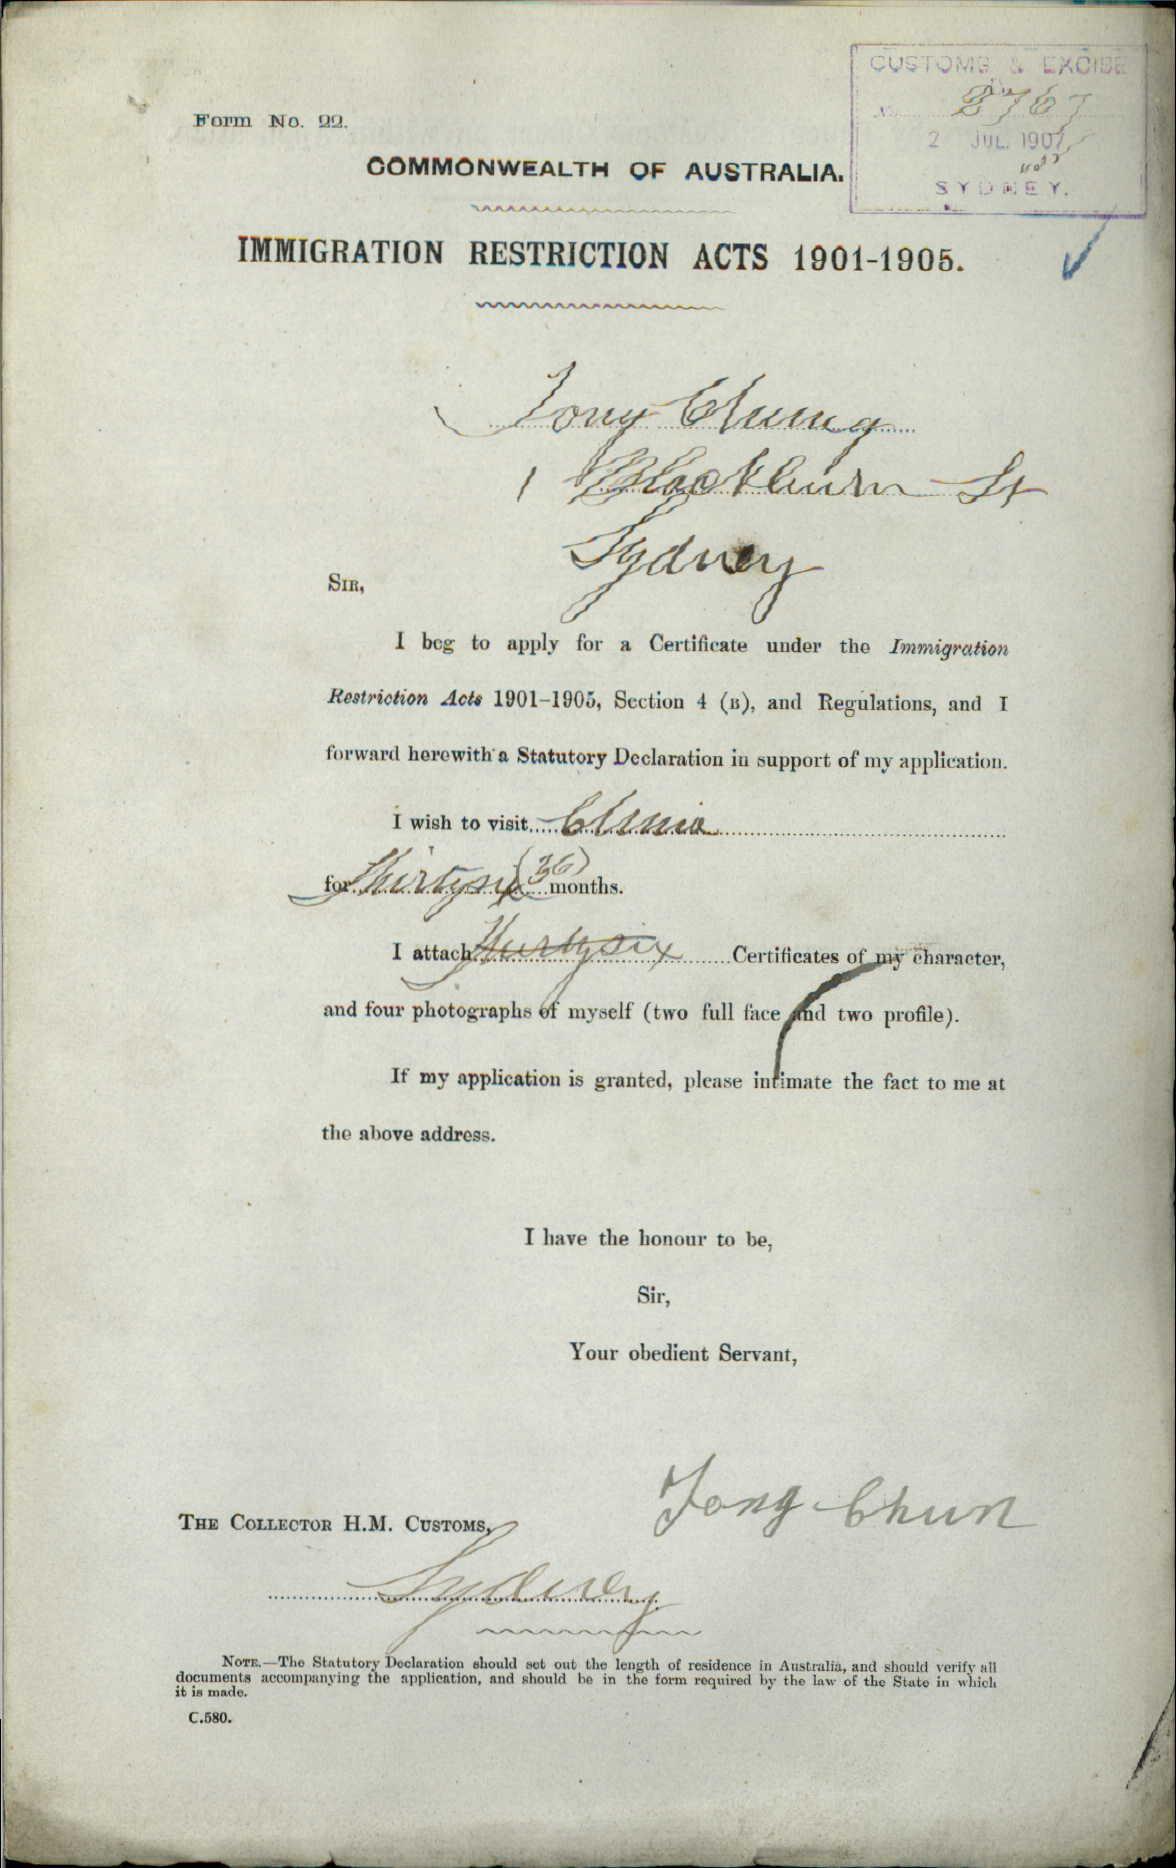 CUSTOMS & EXCISE
No. 8767
2 JUL. 1907
SYDNEY.
Form No. 22.
COMMONWEALTH OF AUSTRALIA.
IMMIGRATION RESTRICTION ACTS 1901-1905.
Tong Chung
1 Blackburn St
Sydney
SIR,
I beg to apply for a Certificate under the Immigration
Restriction Acts 1901-1905, Section 4 (B), and Regulations, and I
forward herewith a Statutory Declaration in support of my application.
I wish to visit China
for Thirtysix (36) months.
I attach Thirtysix Certificates of my character,
and four photographs of myself (two full face and two profile).
If my application is granted, please intimate the fact to me at
the above address.
I have the honour to be,
Sir,
Your obedient Servant,
Tong Chun
THE COLLECTOR H.M. CUSTOMS,
Sydney
NOTE.—The Statutory Declaration should set out the length of residence in Australia, and should verify all
documents accompanying the application, and should be in the form required by the law of the State in which
it is made.
C.580.